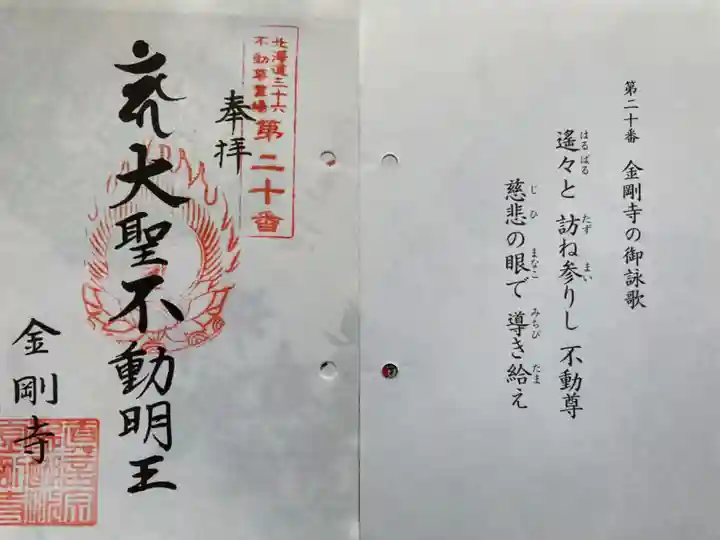 第二十番 金剛寺の御詠歌
遙々と 訪ね参りし 不動尊
はるばる たず まい
慈悲の眼で 導き給え
じひ まなこ みちび たま
北海道三十六
不動尊霊場
第二十番
奉拝
大聖不動明王
金剛寺